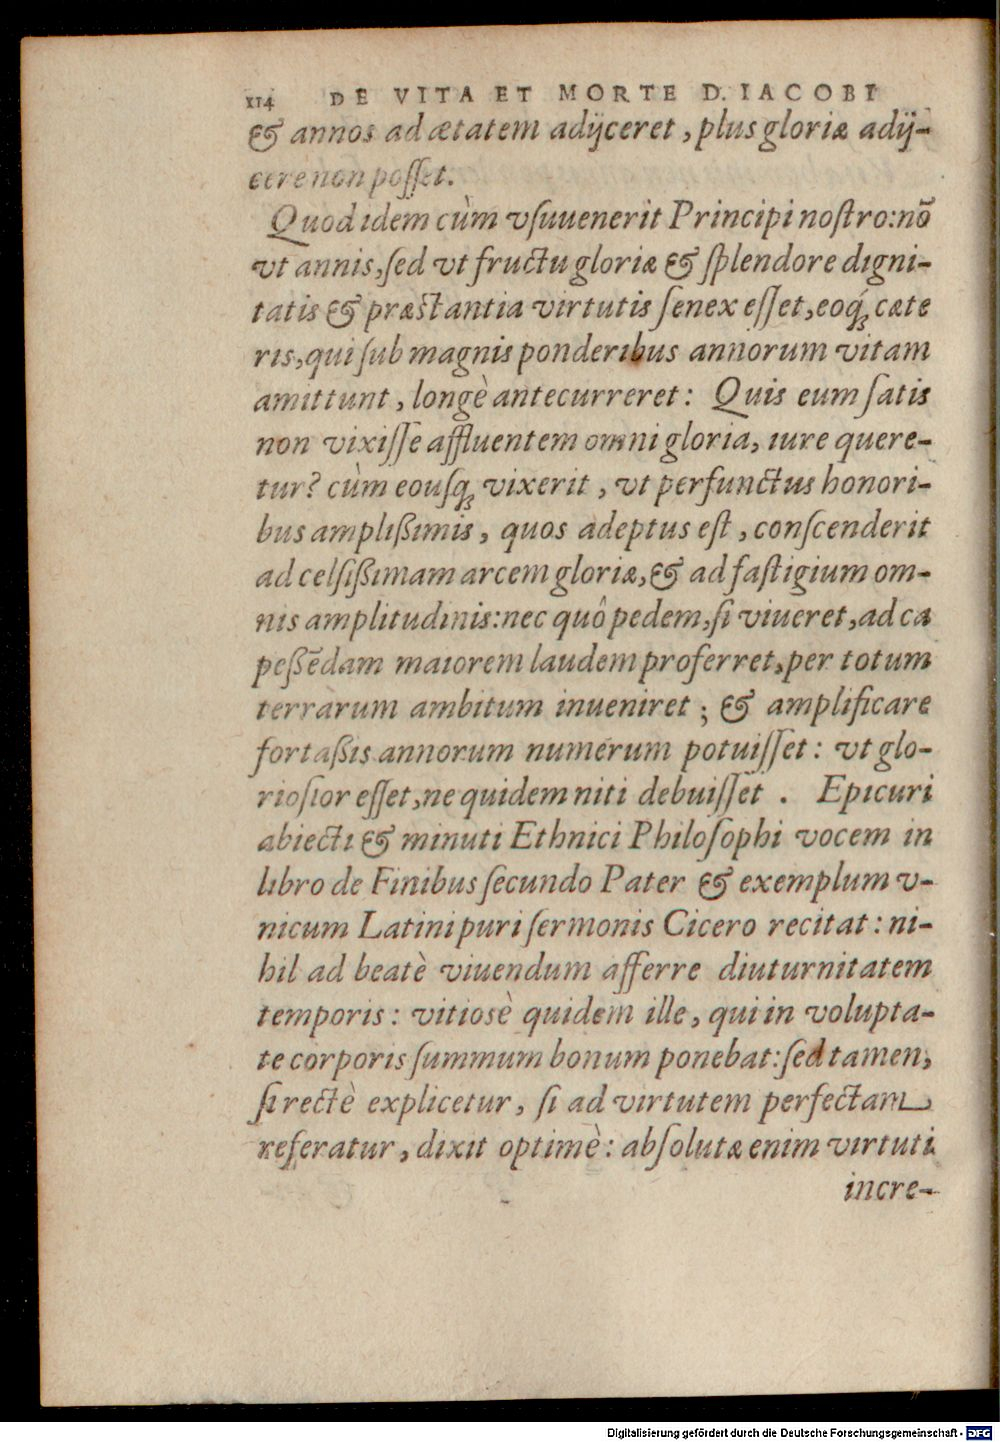 114 DE VITA ET MORTE D. IACOBI
& annos ad ætatem adijceret, plus gloriæ adij-
cere non poſſet.
Quod idem cùm vſuuenerit Principi noſtro: nō
vt annis, ſed vt fructu gloriæ & ſplendore digni-
tatis & præſtantia virtutis ſenex eſſet, eoq́ꝫ cæte
ris, qui ſub magnis ponderibus annorum vitam
amittunt, longè antecurreret: Quis eum ſatis
non vixiſſe affluentem omni gloria, iure quere-
tur? cùm eouſqꝫ vixerit, vt perfunctus honori-
bus amplißimis, quos adeptus eſt, conſcenderit
ad celſißimam arcem gloriæ, & ad faſtigium om-
nis amplitudinis: nec quô pedem, ſi viueret, ad ca
peßēdam maiorem laudem proferret, per totum
terrarum ambitum inueniret; & amplificare
fortaßis annorum numerum potuiſſet: vt glo-
rioſior eſſet, ne quidem niti debuiſſet. Epicuri
abiecti & minuti Ethnici Philoſophi vocem in
libro de Finibus ſecundo Pater & exemplum v-
nicum Latini puri ſermonis Cicero recitat: ni-
hil ad beatè viuendum afferre diuturnitatem
temporis: vitiosè quidem ille, qui in volupta-
te corporis ſummum bonum ponebat: ſed tamen,
ſi rectè explicetur, ſi ad virtutem perfectam
referatur, dixit optimè: abſolutæ enim virtuti
incre-
Digitalisierung gefördert durch die Deutsche Forschungsgemeinschaft - DFG